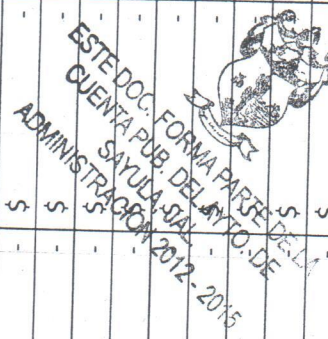 ESTE DOC. FORMA PARTE DE LA
CUENTA PUB. DEL AYTO. DE
SAYULA, JAL
ADMINISTRACION 2012 - 2015
$ $ $ $ $ $ $
- - - - - - - -
- - - - - - -